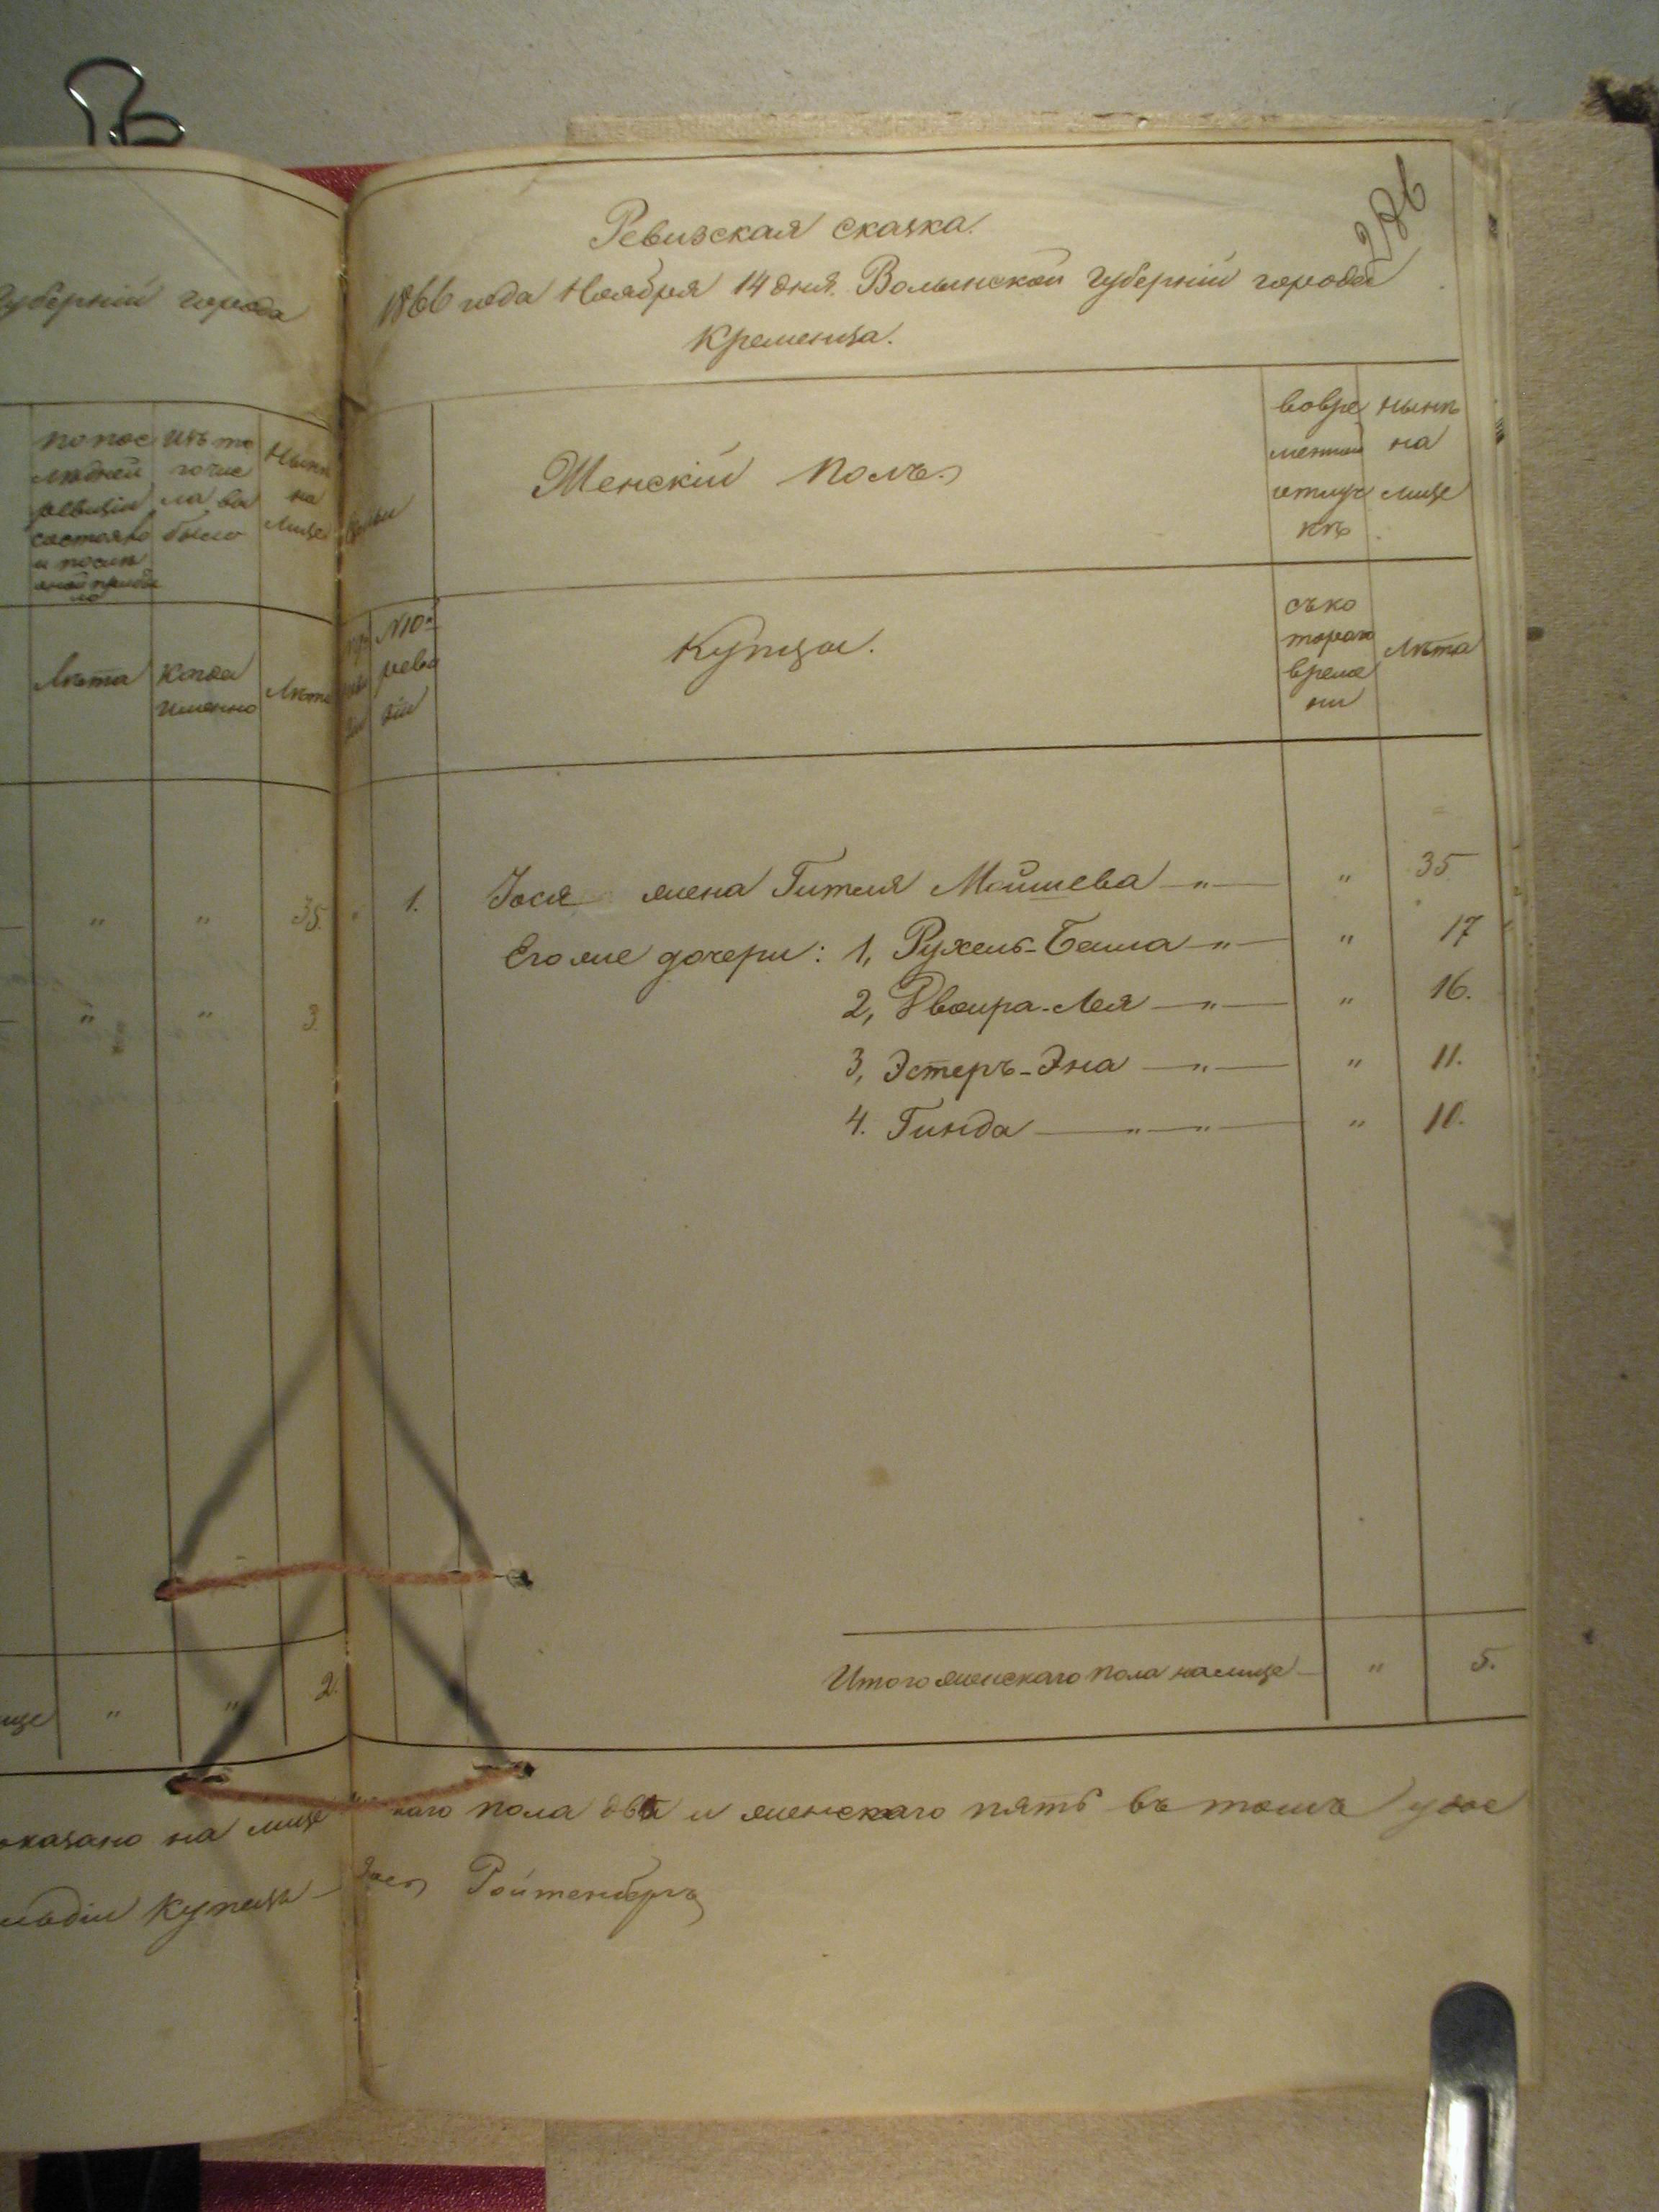 губерніи города
по пос
лѣдней
ревизіи
состояло
и после
оной прибы
ло
Изъ то
го чис
ла вы
было
Нынѣ
на
лице
Лѣта
Когда
именно
Лѣта
" " 35.
" " 3.
лице " " 2.
оказано на лице
Купецъ
276
Ревизская сказка.
1866 года Ноября 14 дня. Волынской губерніи города
Кременца.
Женскій полъ.
вовре
менной
отлуч
кѣ
нынѣ
на
лице
№ 10й
реви
зіи
Купцы.
съ ко
тораго
време
ни
Лѣта
" 1. Іося жена Гитля Мойшева —"— " 35.
Его же дочери: 1, Рухель-Бейла —"— " 17
2, Двойра-Лея —"— " 16.
3, Эстеръ-Эна —"— " 11.
4. Гинда —"—"— " 10.
Итого женскаго пола налице — " 5.
каго пола два и женскаго пять въ томъ
Іось Ройтенбергъ